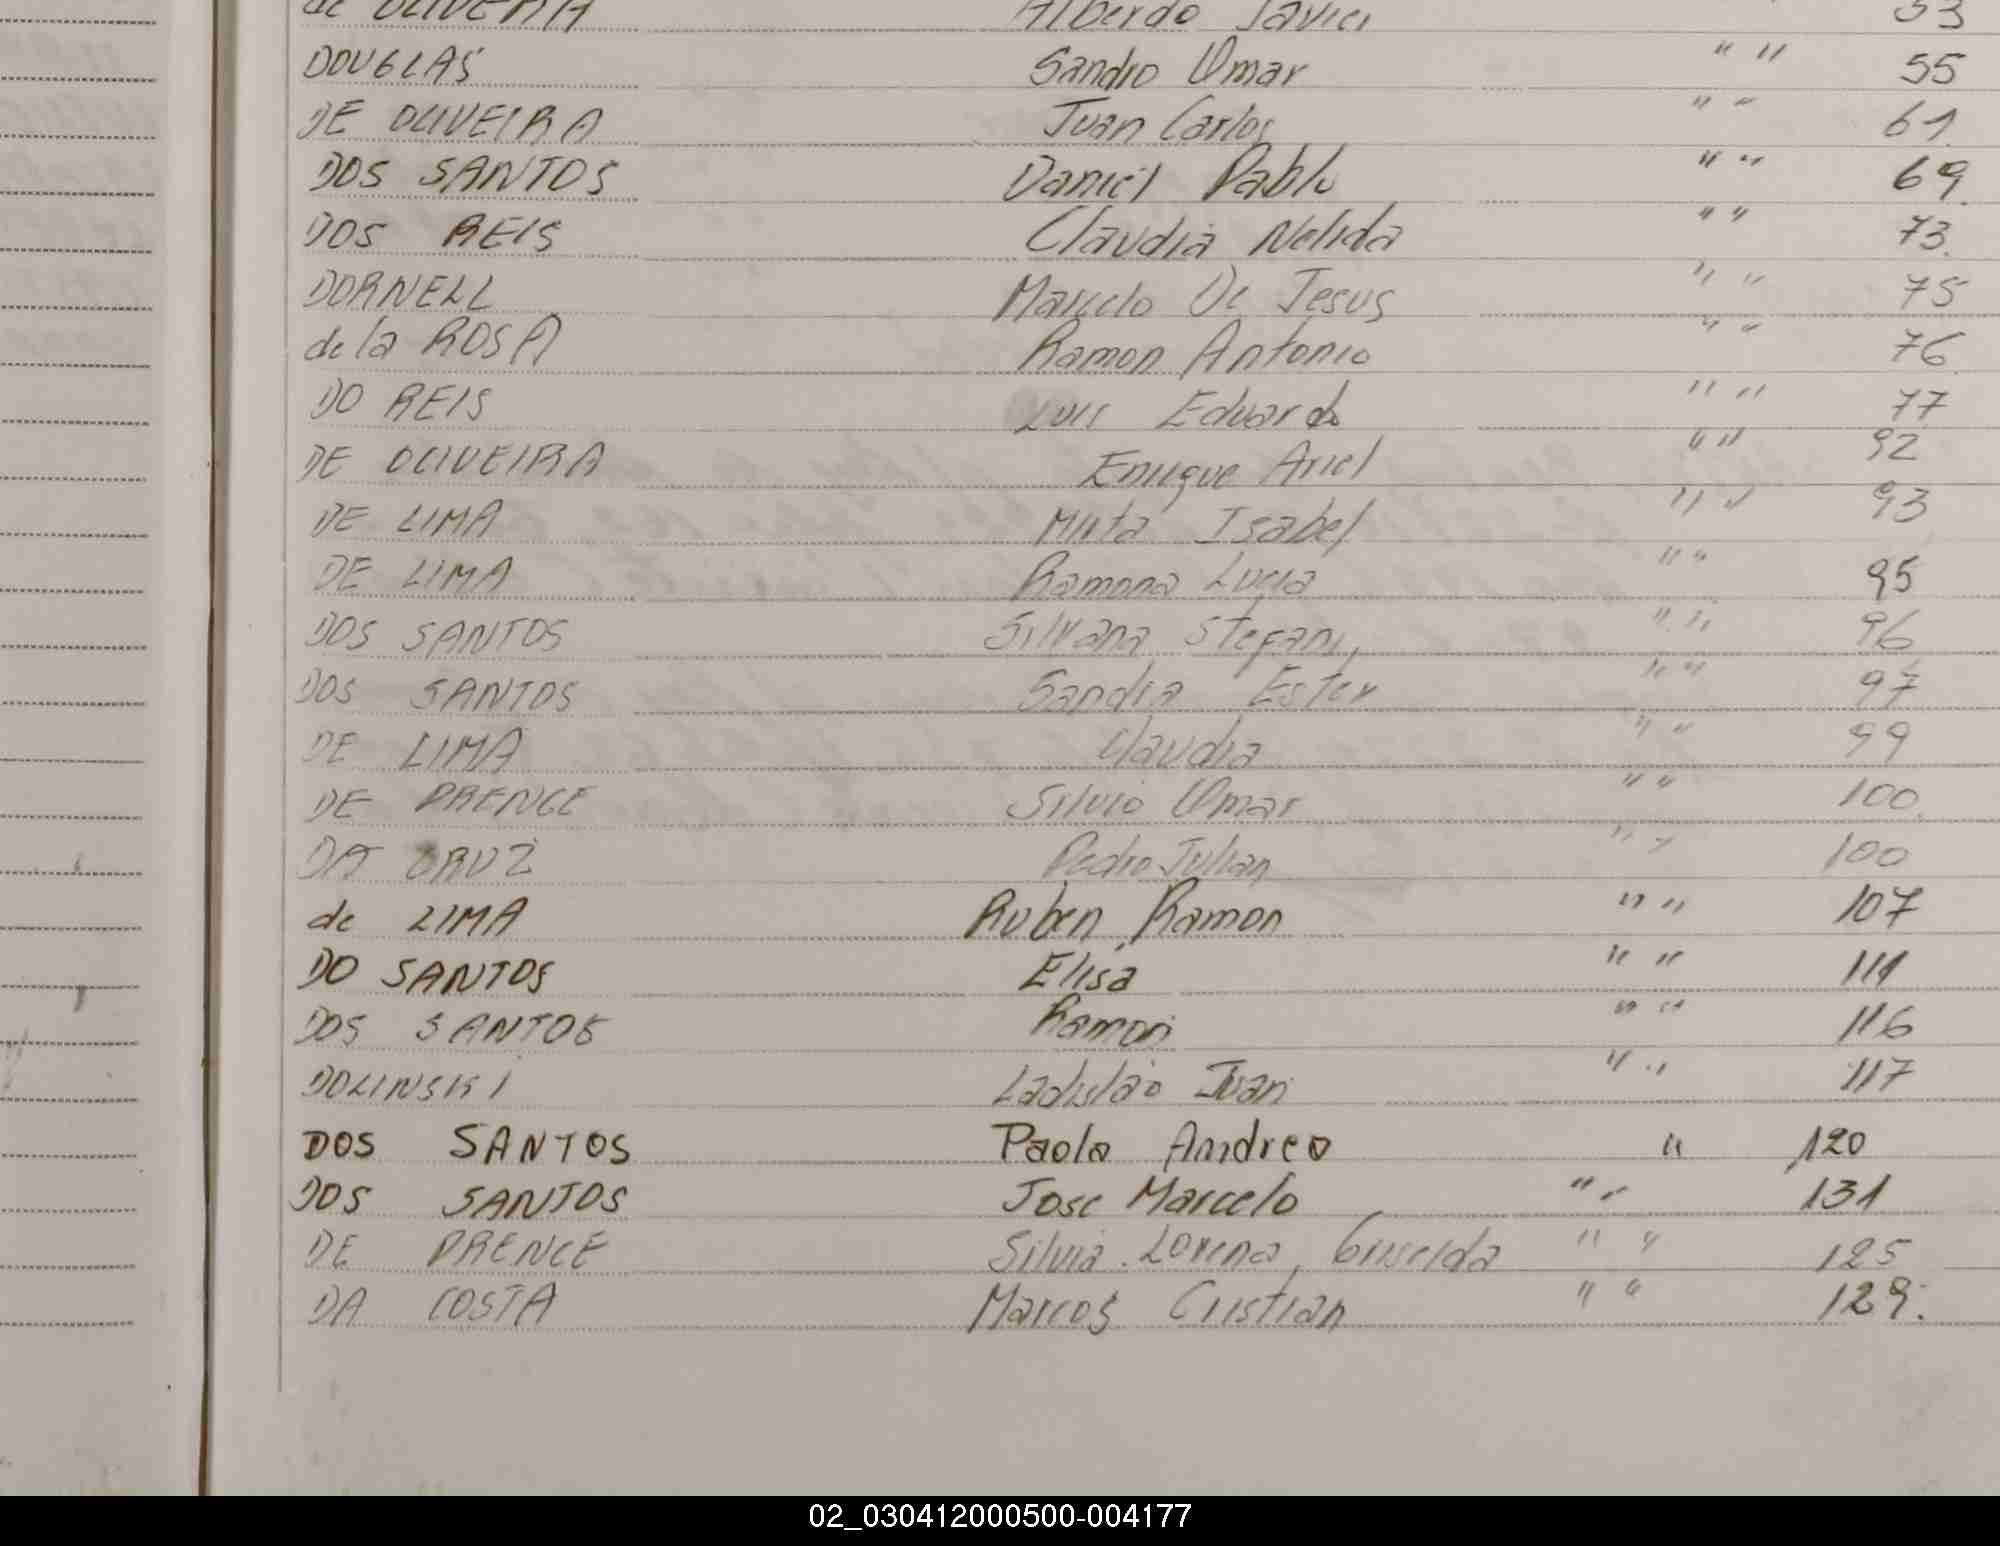 de OLIVEIRA Alberdo Javier 53
DOUGLAS Sandro Omar " " 55
DE OLIVEIRA Juan Carlos " " 61.
DOS SANTOS Daniel Pablo " " 69.
DOS REIS Claudia Nelida " " 73.
DORNELL Marcelo De Jesus " " 75
de la ROSA Ramon Antonio " " 76
DO REIS Luis Eduardo " " 77
DE OLIVEIRA Enrique Ariel " " 92
DE LIMA Mirta Isabel " " 93
DE LIMA Ramona Lucia " " 95
DOS SANTOS Silvana Stefani, " " 96
DOS SANTOS Sandra Ester " " 97
DE LIMA Claudia " " 99
DE PRENCE Silvio Omar " " 100.
DA CRUZ Pedro Julian " " 100
de LIMA Ruben Ramon " " 107
DO SANTOS Elisa " " 111
DOS SANTOS Ramon " " 116
DOLINSKI Ladislao Juan " " 117
DOS SANTOS Paola Andrea " 120
DOS SANTOS Jose Marcelo " " 131
DE PRENCE Silvia Lorena Griselda " " 125
DA COSTA Marcos Cristian " " 129.
02_030412000500-004177